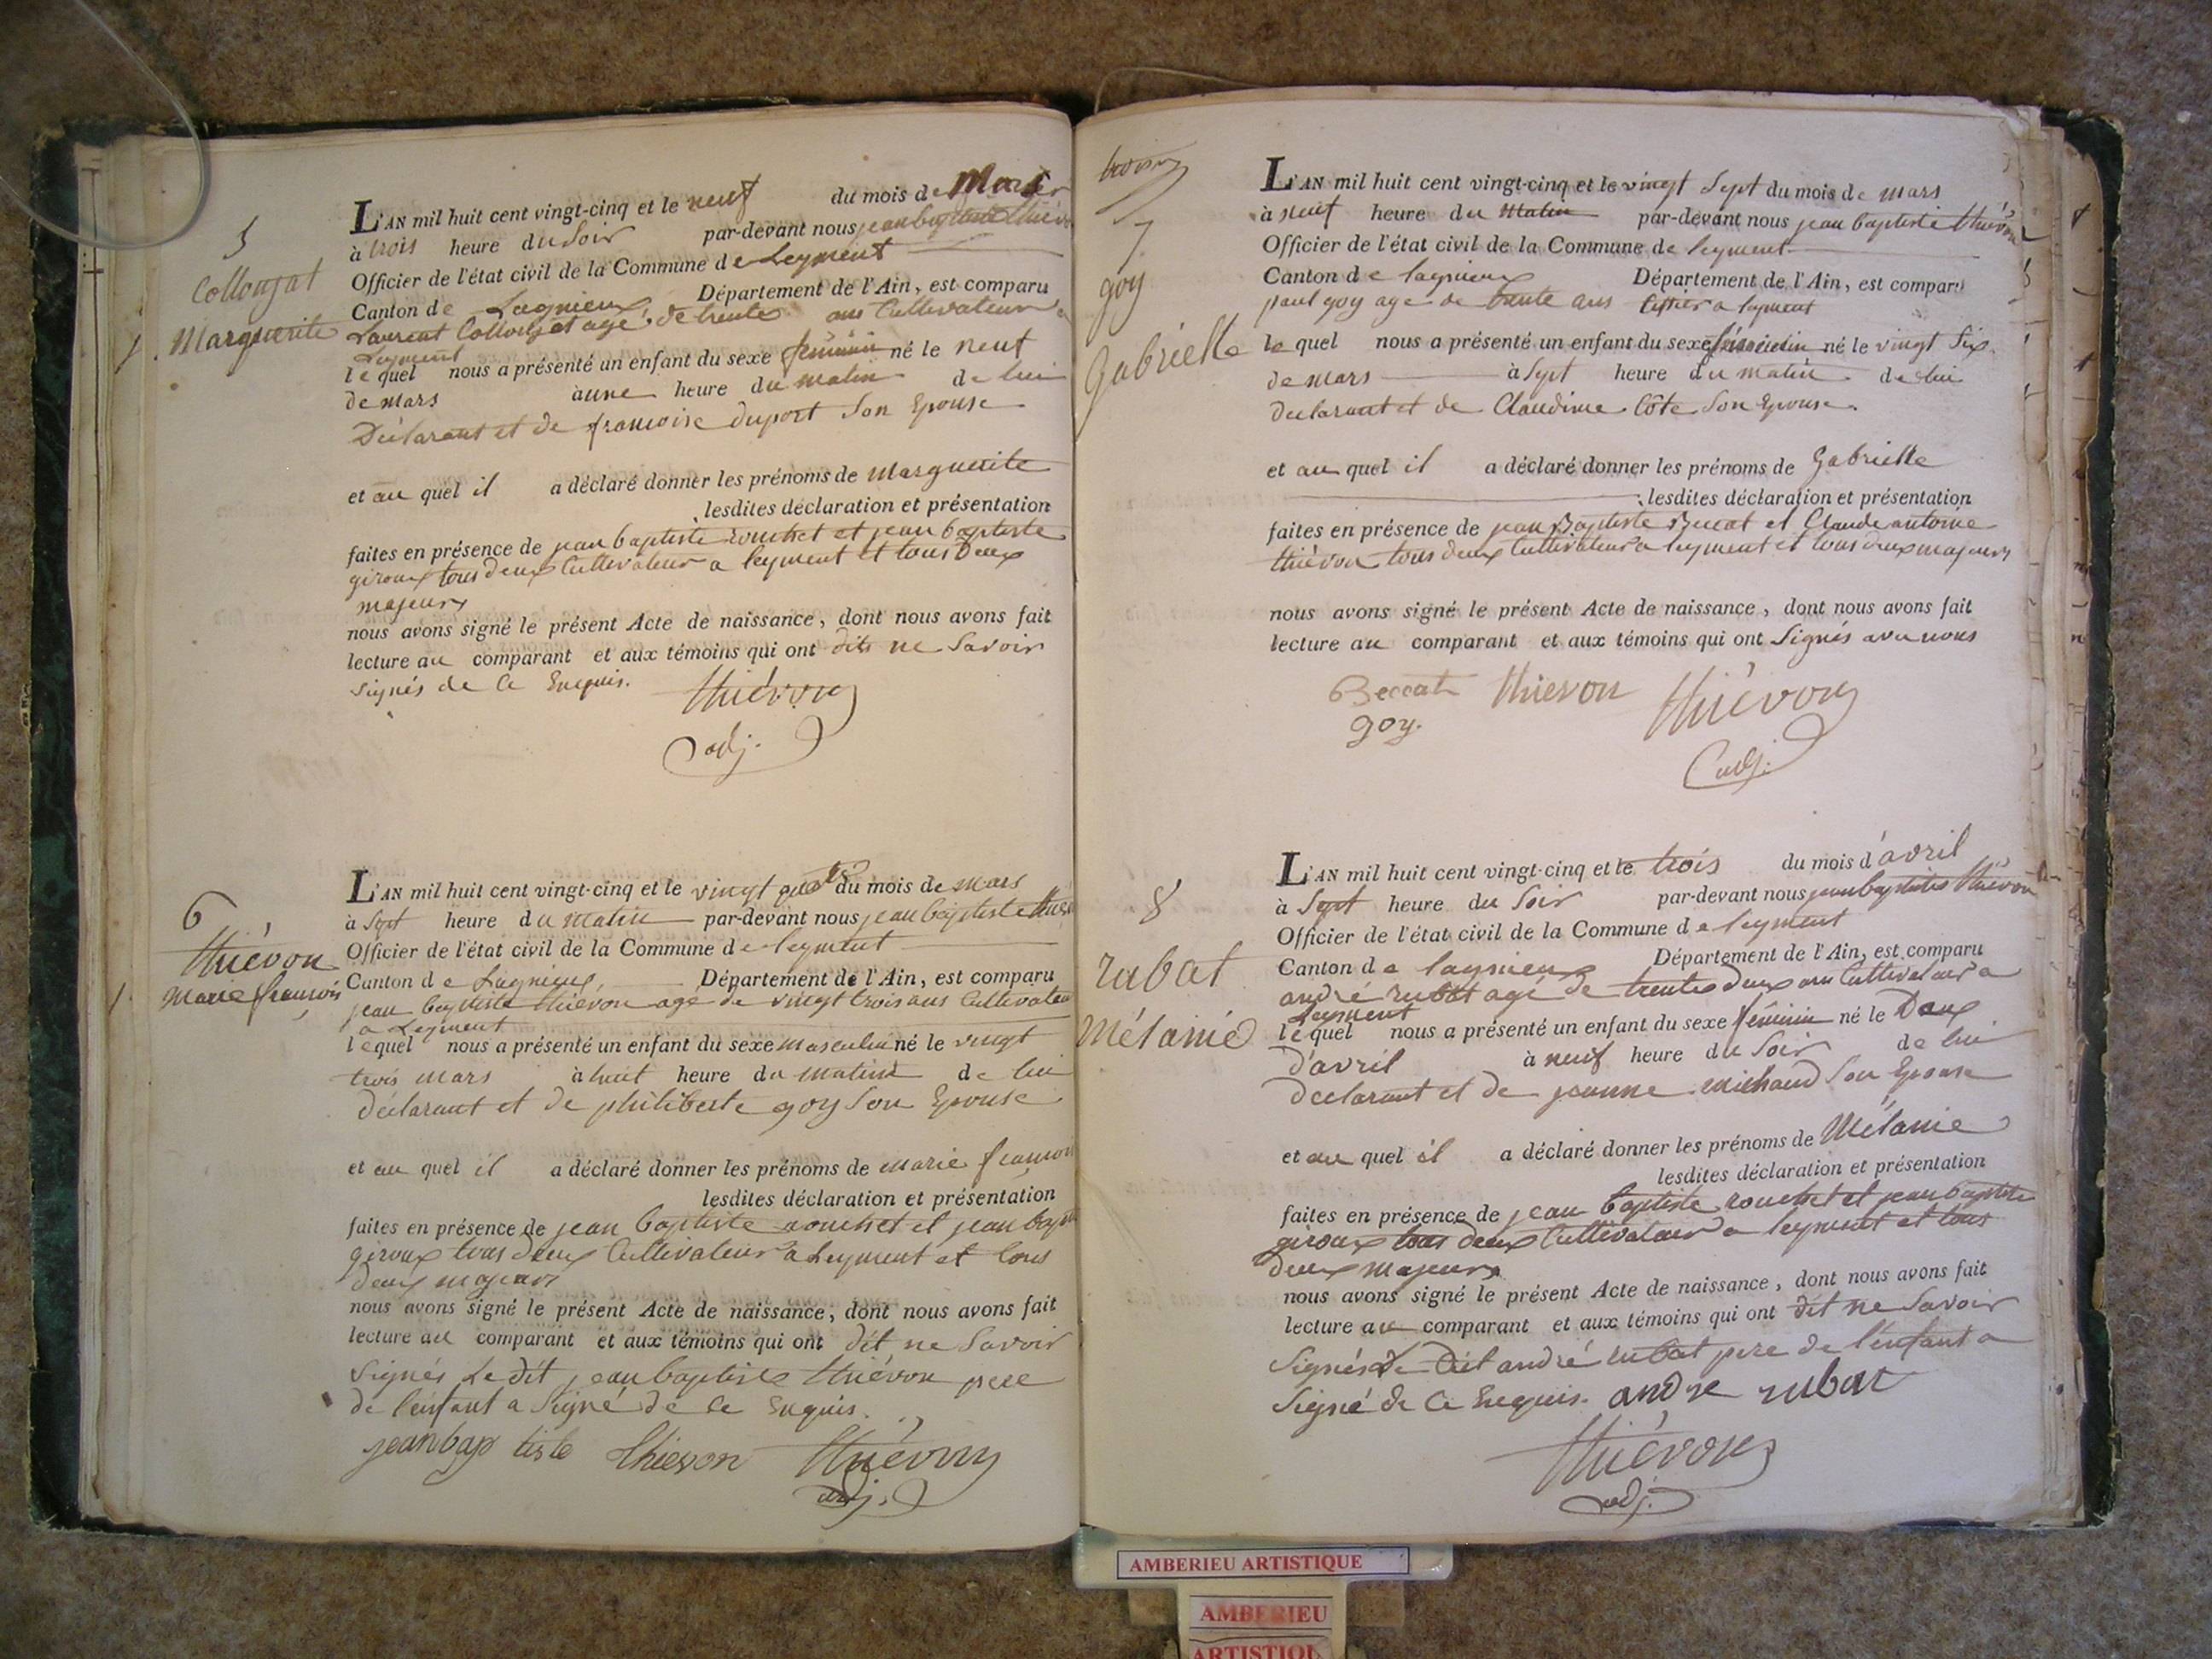 5
Collonjat
Marguerite
L'AN mil huit cent vingt-cinq et le neuf du mois de Mars
à trois heure du Soir par-devant nous jean baptiste thiévon
Officier de l'état civil de la Commune de Leyment
Canton de Lagnieux Département de l'Ain, est comparu
Laurent Collonjat agé de trente ans Cultivateur a
Leyment
le quel nous a présenté un enfant du sexe féminin né le neuf
de mars à une heure du matin de lui
Déclarant et de francoise duport Son Epouse
et au quel il a déclaré donner les prénoms de Marguerite
lesdites déclaration et présentation
faites en présence de jean baptiste rouchet et jean baptiste
giroux tous deux Cultivateur a leyment et tous Deux
majeurs
nous avons signé le présent Acte de naissance, dont nous avons fait
lecture au comparant et aux témoins qui ont dits ne Savoir
signés de Ce Enquis. thiévon
adj.
6
thiévon
marie françois
L'AN mil huit cent vingt-cinq et le vingt du mois de mars
à Sept heure du matin par-devant nous jean baptiste
Officier de l'état civil de la Commune de leyment
Canton de Lagnieux Département de l'Ain, est comparu
jean baptiste thiévon agé de vingt trois ans Cultivateur
a Leyment
lequel nous a présenté un enfant du sexe masculin né le vingt
trois mars à huit heure du matin de lui
déclarant et de philiberte goy Son Epouse
et au quel il a déclaré donner les prénoms de marie françois
lesdites déclaration et présentation
faites en présence de jean baptiste rouchet et jean baptiste
giroux tous deux Cultivateur a Leyment et tous
deux majeurs
nous avons signé le présent Acte de naissance, dont nous avons fait
lecture au comparant et aux témoins qui ont dit ne Savoir
signés Le dit jean baptiste thiévon pere
de l'enfant a Signé de Ce Enquis.
jean bap tiste thievon thiévon
adj.
7
goy
gabrielle
L'AN mil huit cent vingt-cinq et le vingt Sept du mois de mars
à neuf heure du Matin par-devant nous jean baptiste thiévon
Officier de l'état civil de la Commune de leyment
Canton de lagnieux Département de l'Ain, est comparu
paul goy agé de trente ans a leyment
le quel nous a présenté un enfant du sexe féminin né le vingt Six
de mars à Sept heure du matin de lui
declarant et de Claudine Côte Son Epouse.
et au quel il a déclaré donner les prénoms de Gabrielle
lesdites déclaration et présentation
faites en présence de jean Baptiste Beccat et Claude antoine
thiévon tous deux Cultivateur a leyment et tous deux majeurs
nous avons signé le présent Acte de naissance, dont nous avons fait
lecture au comparant et aux témoins qui ont Signés avec nous
Beccat thievon thiévon
goy.
adj.
8
rubat
Mélanie
L'AN mil huit cent vingt-cinq et le trois du mois d'avril
à Sept heure du Soir par-devant nous jean baptiste thiévon
Officier de l'état civil de la Commune de leyment
Canton de lagnieux Département de l'Ain, est comparu
andré rubat agé de trente deux ans Cultivateur a
Leyment
lequel nous a présenté un enfant du sexe féminin né le Deux
D'avril à neuf heure du Soir de lui
declarant et de jeanne michaud Son Epouse
et au quel il a déclaré donner les prénoms de Mélanie
lesdites déclaration et présentation
faites en présence de jean baptiste rouchet et jean baptiste
giroux tous deux Cultivateur a leyment et tous
deux majeurs
nous avons signé le présent Acte de naissance, dont nous avons fait
lecture au comparant et aux témoins qui ont dit ne Savoir
Signés Le Dit andré rubat pere de l'enfant a
Signé de Ce Enquis. andre rubat
thiévon
adj.
AMBERIEU ARTISTIQUE
AMBERIEU
ARTISTIQU